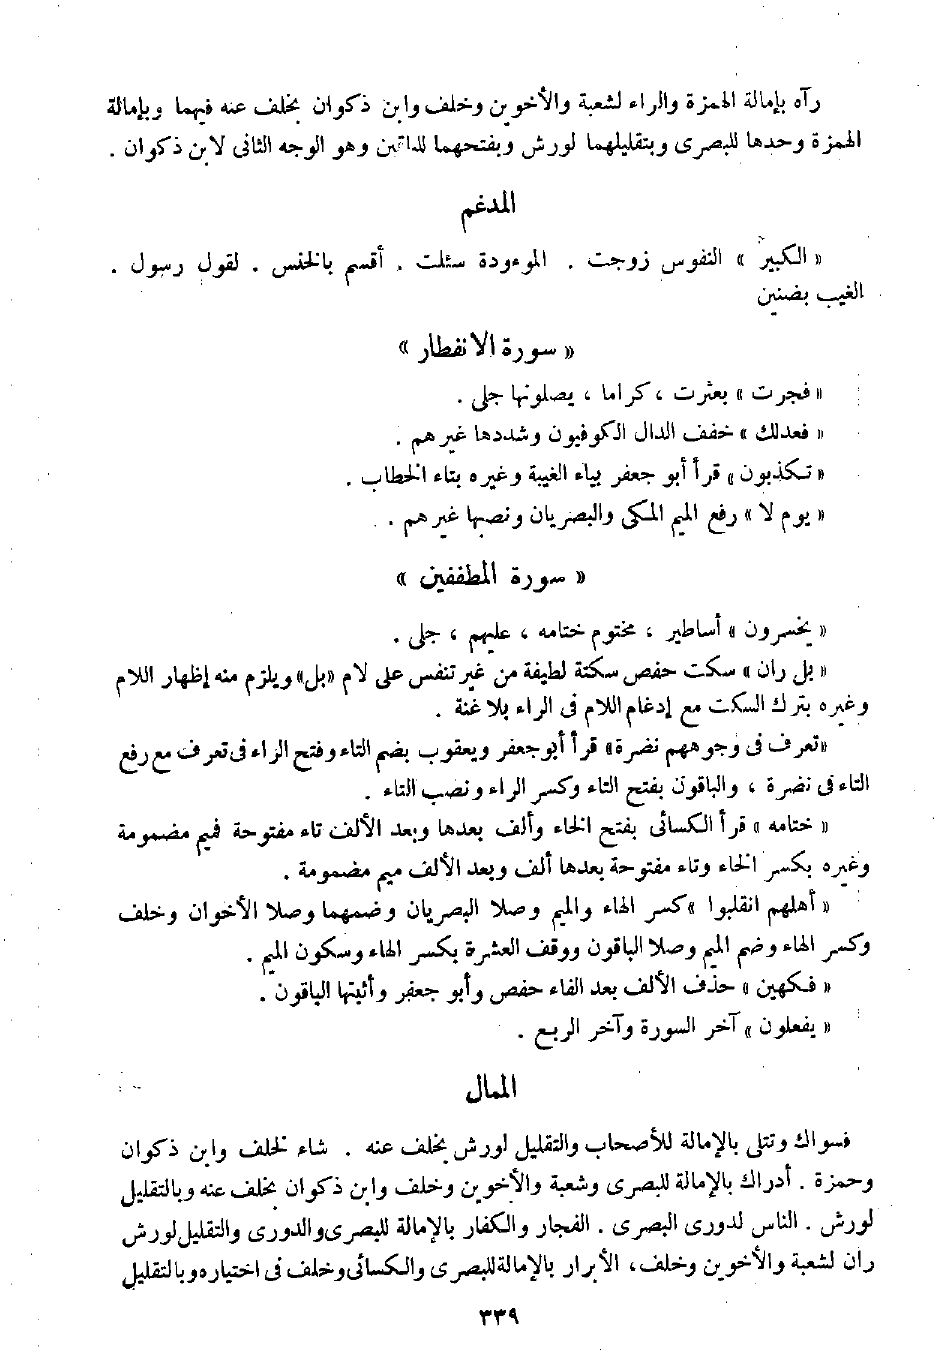 رآه بإمالة الهمزة والراء لشعبة والأخوين وخلف وابن ذكوان بخلف عنه فيهما وبإمالة
الهمزة وحدها للبصرى وبتقليلهما لورش وبفتحهما للباقين وهو الوجه الثانى لابن ذكوان .
المدغم
« الكبير » النفوس زوجت . الموءودة سئلت . أقسم بالخنس . لقول رسول .
الغيب بضنين
« سورة الانفطار »
« فجرت » بعثرت ، كراما ، يصلونها جلى .
« فعدلك » خفف الدال الكوفيون وشددها غيرهم .
« تكذبون » قرأ أبو جعفر بياء الغيبة وغيره بتاء الخطاب .
« يوم لا » رفع الميم المكى والبصريان ونصبها غيرهم .
« سورة المطففين »
« يخسرون » أساطير ، مختوم ختامه ، عليهم ، جلى .
« بل ران » سكت حفص سكتة لطيفة من غير تنفس على لام «بل» ويلزم منه إظهار اللام
وغيره بترك السكت مع إدغام اللام فى الراء بلا غنة .
«تعرف فى وجوههم نضرة» قرأ أبو جعفر ويعقوب بضم التاء وفتح الراء فى تعرف مع رفع
التاء فى نضرة ، والباقون بفتح التاء وكسر الراء ونصب التاء .
« ختامه » قرأ الكسائى بفتح الخاء وألف بعدها وبعد الألف تاء مفتوحة فميم مضمومة
وغيره بكسر الخاء وتاء مفتوحة بعدها ألف وبعد الألف ميم مضمومة .
« أهلهم انقلبوا » كسر الهاء والميم وصلا البصريان وضمهما وصلا الأخوان وخلف
وكسر الهاء وضم الميم وصلا الباقون ووقف العشرة بكسر الهاء وسكون الميم .
« فكهين » حذف الألف بعد الفاء حفص وأبو جعفر وأثبتها الباقون .
« يفعلون » آخر السورة وآخر الربع .
الممال
فسواك وتتلى بالإمالة للأصحاب والتقليل لورش بخلف عنه . شاء لخلف وابن ذكوان
وحمزة . أدراك بالإمالة للبصرى وشعبة والأخوين وخلف وابن ذكوان بخلف عنه وبالتقليل
لورش . الناس لدورى البصرى . الفجار والكفار بالإمالة للبصرى والدورى والتقليل لورش
ران لشعبة والأخوين وخلف، الأبرار بالإمالة للبصرى والكسائى وخلف فى اختياره وبالتقليل
٣٣٩